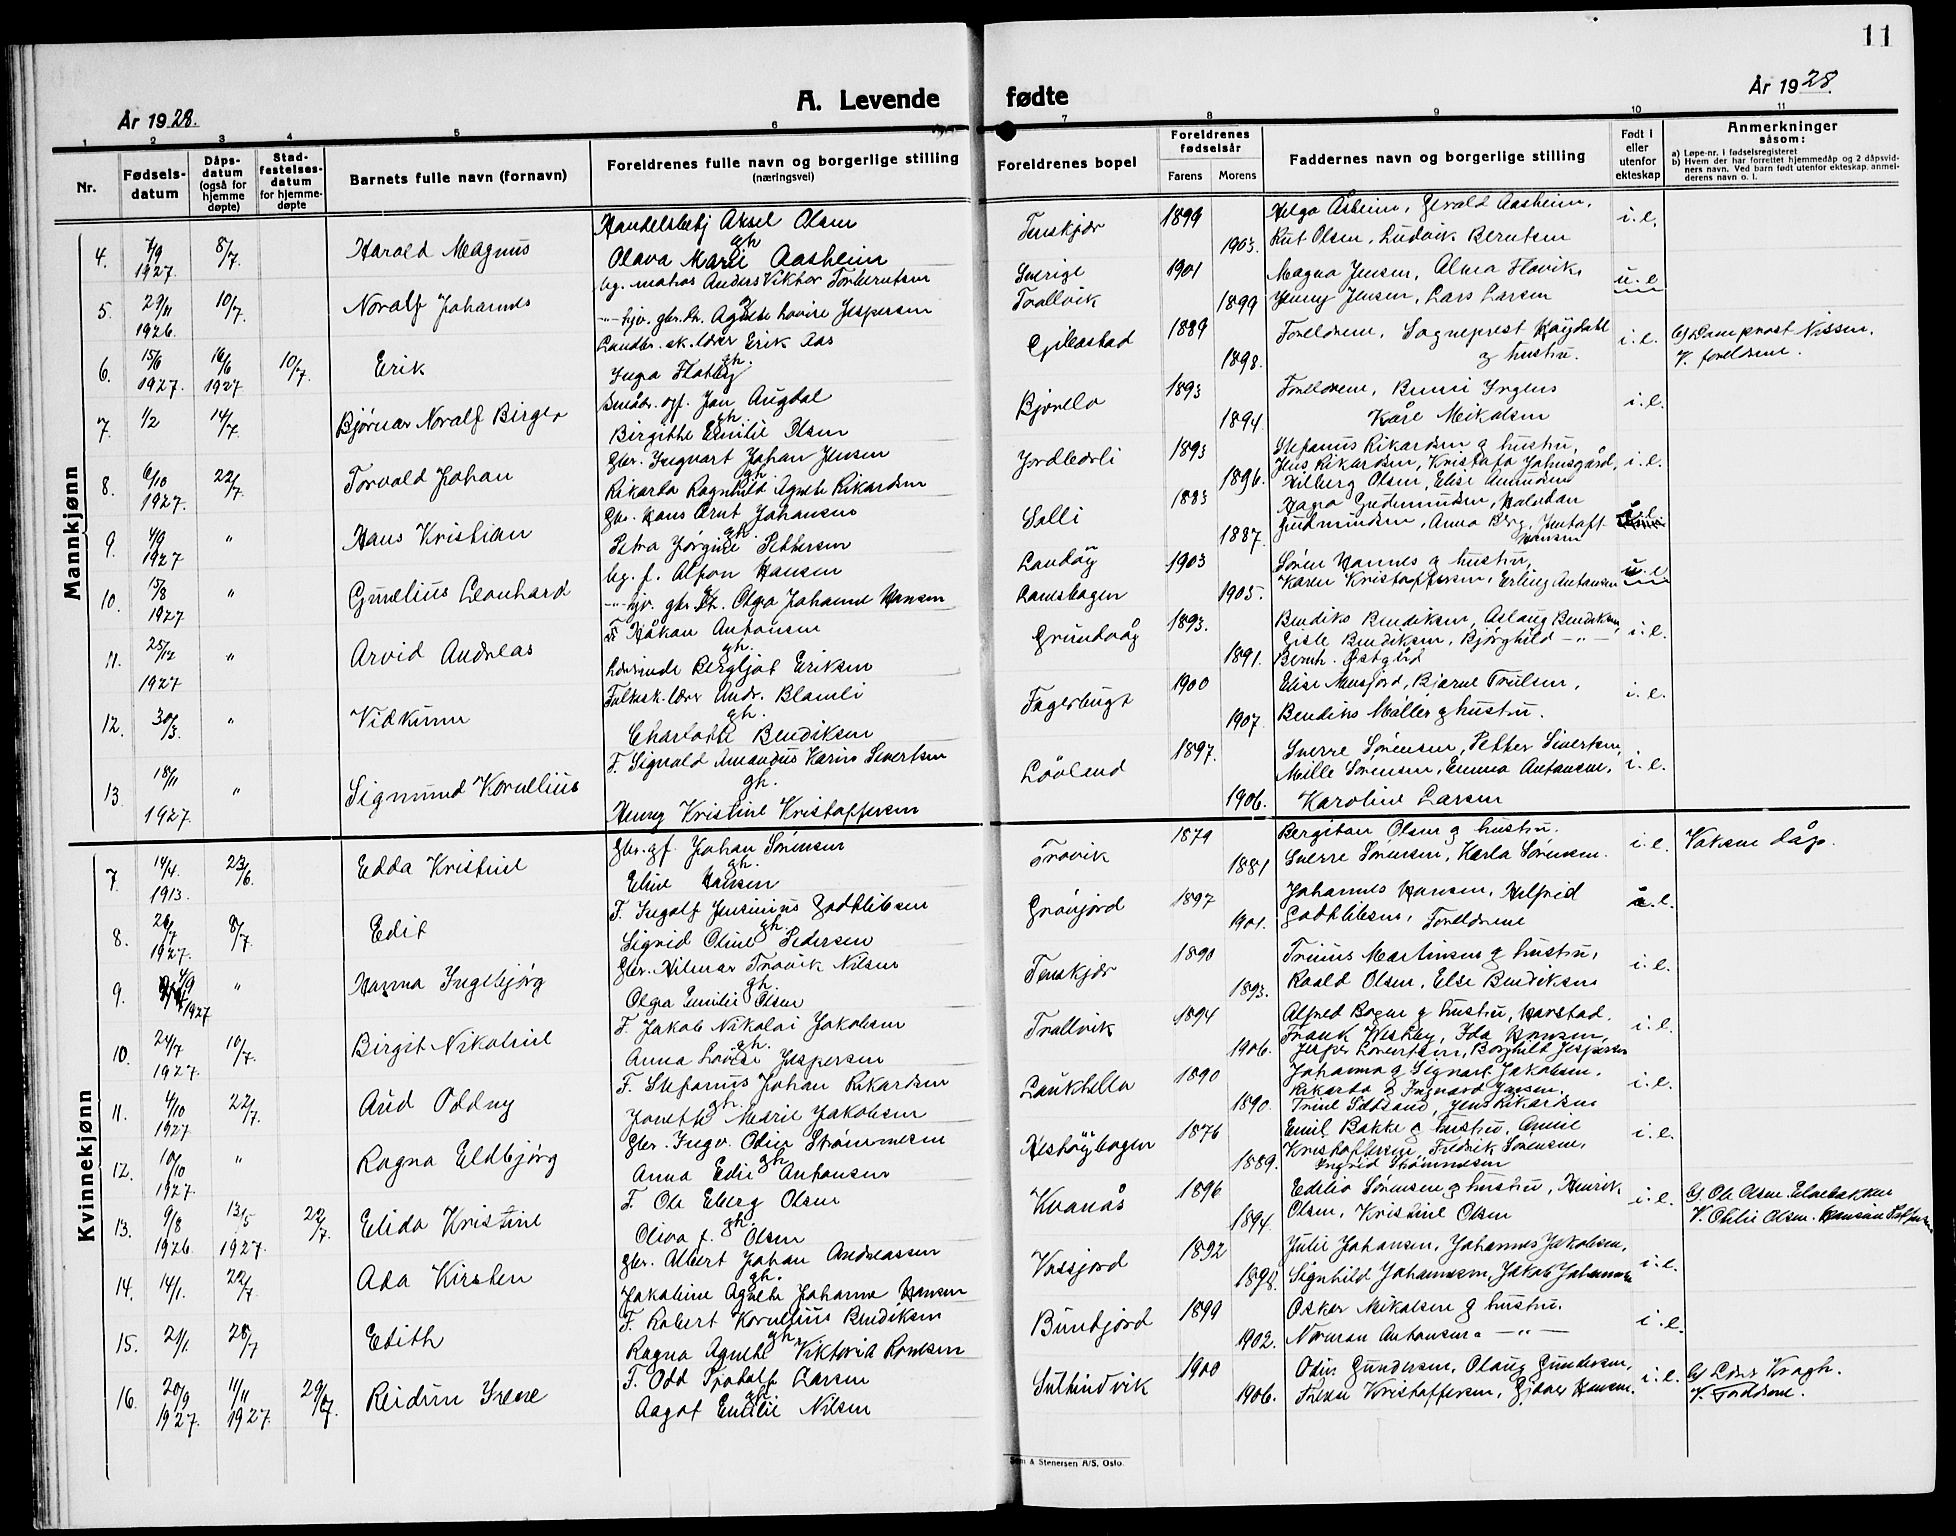 11
A. Levende fødte
År 1928.
År 1928.
1 2 3 4 5 6 7 8 9 10 11
Nr.
Fødsels-
datum
Dåps-
datum
(også for
hjemme
døpte)
Stad-
festelses-
datum
for hjemme-
døpte
Barnets fulle navn (fornavn)
Foreldrenes fulle navn og borgerlige stilling
(næringsvei)
Foreldrenes bopel
Foreldrenes
fødselsår
Farens Morens
Faddernes navn og borgerlige stilling
Født i
eller
utenfor
ekteskap
Anmerkninger
såsom:
a) Løpe-nr. i fødselsregisteret
b) Hvem der har forrettet hjemmedåp og 2 dåpsvid-
ners navn. Ved barn født utenfor ekteskap, anmel-
derens navn o. l.
Mannkjønn
4. 7/9 1927. 8/7. Harald Magnus
Handelsbetj Aksel Olsen
gh
Olava Marie Aasheim
Tenskjær 1899 1903.
Helga Åsheim, Gerald Aasheim,
Rut Olsen, Ludvik Berntsen
i.e.
5. 29/11 1926. 10/7. Noralf Johannes
ug. matros Anders Viktor Torbertsen
-"- hjv. gbr. dr. Agnete Lovise Jespersen
Sverige
Trallvik 1901 1899
Magna Jensen, Alma Flavik,
Jenny Jensen, Lars Larsen
u.e
6. 15/6 1927. 16/6 1927 10/7. Erik
Landbr. sk. lærer Erik Aas
gh.
Inga Flatby
Gibostad 1889 1898.
Foreldrene, Sogneprest Høydahl
g hustru.
i.e.
V. foreldrene.
7. 1/2 14/7. Bjørnar Noralf Birger
Småbr. opf. Jan Augdal
gh.
Birgitte Emilie Olsen
Bjorelo 1893 1894.
Foreldrene,
Kåre Mikalsen
i.e.
8. 6/10 1927. 22/7. Torvald Johan
Gbr. Ingvart Johan Jensen
gh
Rikarda Ragnhild Agnete Rikardsen
Jordbærli 1893 1896.
Stefanus Rikardsen g hustru,
Jens Rikardsen, Kristofa Johnsgård,
Hilberg Olsen, Elise Amundsen
i.e.
9. 4/9 1927 " Hans Kristian
Gbr. Hans Arnt Johansen
gh.
Petra Jørgine Pettersen
Salli 1883 1887.
Hagro Gudmundsen, Halvdan
Gudmundsen, Anna Berg, Jentoft
Hansen
i.e.
10. 15/8 1927 " Gunelius Leonhard
ug. f. Alfon Hansen
-"- hjv. gbr. dt. Olga Johanne Hansen
Landøy
Laneshagen 1903 1905.
Søren Hannes g hustru,
Karen Kristoffersen, Erling Antonsen
u.e
11. 25/12 1927 " Arvid Andreas
F Håkon Antonsen
gh.
Lærerinde Bergljot Eriksen
Grundvåg 1893. 1891.
Bendiks Bendiksen, Aslaug Bendiksen,
Gisle Bendiksen, Bjørghild -"-,
Bernh. Østgård
i.e.
12. 30/3. " Vidkunn
Folkesk. lærer Andr. Blamli
gh.
Charlotte Bendiksen
Fagerbugt 1900 1907.
Elise Mensfjord, Bjarne Trulsen,
Bendiks Møller g hustru.
i.e.
13. 18/11 1927. " Sigmund Kornelius
F. Signald Amandus Karins Sivertsen
gh.
Henny Kristine Kristoffersen
Løvlund 1897. 1906.
Sverre Sørensen, Petter Sivertsen,
Mille Sørensen, Emma Antonsen,
Karoline Larsen
i.e.
Kvinnekjønn
7. 14/4. 1913. 23/6. Edda Kristine
Gbr. gf. Johan Sørensen
gh.
Eline Hansen
Trovik 1879 1881
Bergitan Olsen g hustru.
Sverre Sørensen, Karla Sørensen.
i.e. Voksen dåp.
8. 26/7 1927. 8/7. Edit
F. Ingolf Jensinius Godtlibsen
gh.
Sigrid Oline Pedersen
Grønjord 1897 1901.
Johannes Hansen, Helfrid
Godtlibsen, Foreldrene
i.e.
9. 4/9 1927 " Hanna Ingebjørg
Gbr. Hilmar Trovik Nilsen
gh.
Olga Emilie Olsen
Tenskjær 1890 1893.
Trinus Martinsen g hustru,
Roald Olsen, Else Bendiksen
i.e.
10. 24/7 1927. 10/7. Birgit Nikoline
F. Jakob Nikolai Jakobsen
gh.
Anna Lovise Jespersen
Trallvik 1894 1906.
Alfred Bogen g hustru, Harstad.
Frank Westby, Ida Hansen,
Jesper Lorentsen, Borghild Jespersen
i.e.
11. 4/10 1927. 22/7. Aud Oddny
F. Stefanus Johan Rikardsen
gh.
Jonette Marie Jakobsen
Laukhella 1890 1890.
Johanna g Sigvart Jakobsen,
Rikarda g Ingvard Jensen,
Trine Sætsand, Jens Rikardsen
i.e.
12. 10/10 1927. " Ragna Eldbjørg
Gbr. Ingv. Odin Strømmesen
gh
Anna Edie Antonsen
Hestøybogen 1876 1889.
Emil Bakke g hustru, Amine
Kristoffersen, Fredrik Sørensen,
Ingrid Strømmesen
i.e.
13. 9/8 1926. 13/5 1927. 22/7. Elida Kristine
F. Ole Eberg Olsen
gh
Oliva f. Olsen
Kvanås 1896 1894.
Edilio Sørensen g hustru, Henrik
Olsen, Kristine Olsen
i.e. b/ Ole Olsen. Elvebakken
V. Otilie Olsen. Hansine Pettersen
14. 14/1. 22/7. Ada Kirsten
Gbr. Albert Johan Andreassen
gh.
Jakobine Agnete Johanne Hansen
Vassjord 1892 1898.
Julie Johansen, Johannes Jakobsen,
Signhild Johannesen, Jakob Johannesen
i.e.
15. 2/1. 28/7 Edith
F. Robert Kornelius Bendiksen
gh.
Ragna Agnete Viktoria Hansen
Bundjord 1899 1902.
Oskar Mikalsen g hustru.
Norman Antonsen -"-
i.e.
16. 20/9 1927. 11/11 1927. 29/7. Reidun Irene
F. Odd Trotolf Larsen
gh
Aagot Emilie Nilsen
Sultindvik 1900 1906.
Odin Gundersen, Olaug Gundersen,
Kristoffersen, Gjdaer Hansen.
i.e. b/ Lars Kragh.
V. Foreldrene.
Sem & Stenersen A/S, Oslo.